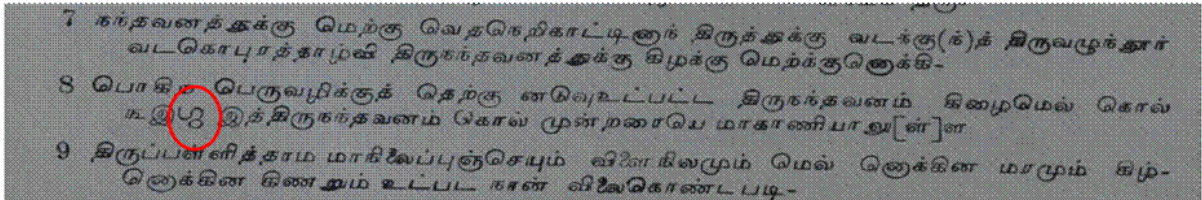 7 நந்தவனத்துக்கு மெற்கு வெதநெறிகாட்டினான் திருத்துக்கு வடக்கு(ந்)த் திருவழுந்தூர்
வடகொபுரத்தாழ்வி திருநந்தவனத்துக்கு கிழக்கு மெற்க்குனொக்கி-
8 பொகிற பெருவழிக்குத் தெற்கு னடுவுஉட்பட்ட திருநந்தவனம் கிழைமெல் கொல்
இத்திருநந்தவனம் கொல் முன்றரையெ மாகாணியாலு[ள்]ள
9 திருப்பள்ளித்தாம மாநிலைப்புஞ்செயும் விளைநிலமும் மெல் னொக்கின மரமும் கிழ்-
னொக்கின கிணறும் உட்பட நான் விலைகொண்டபடி-